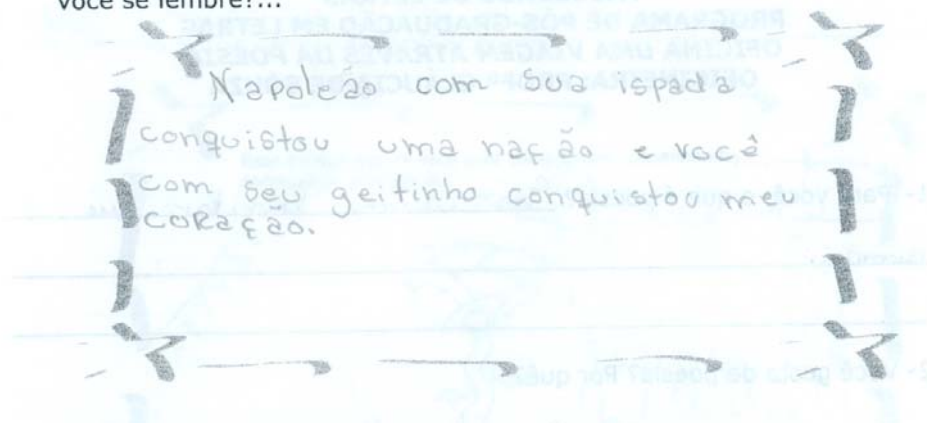 você se lembre?...
Napoleão com sua ispada
conquistou uma nação e você
com seu geitinho conquistou meu
coração.